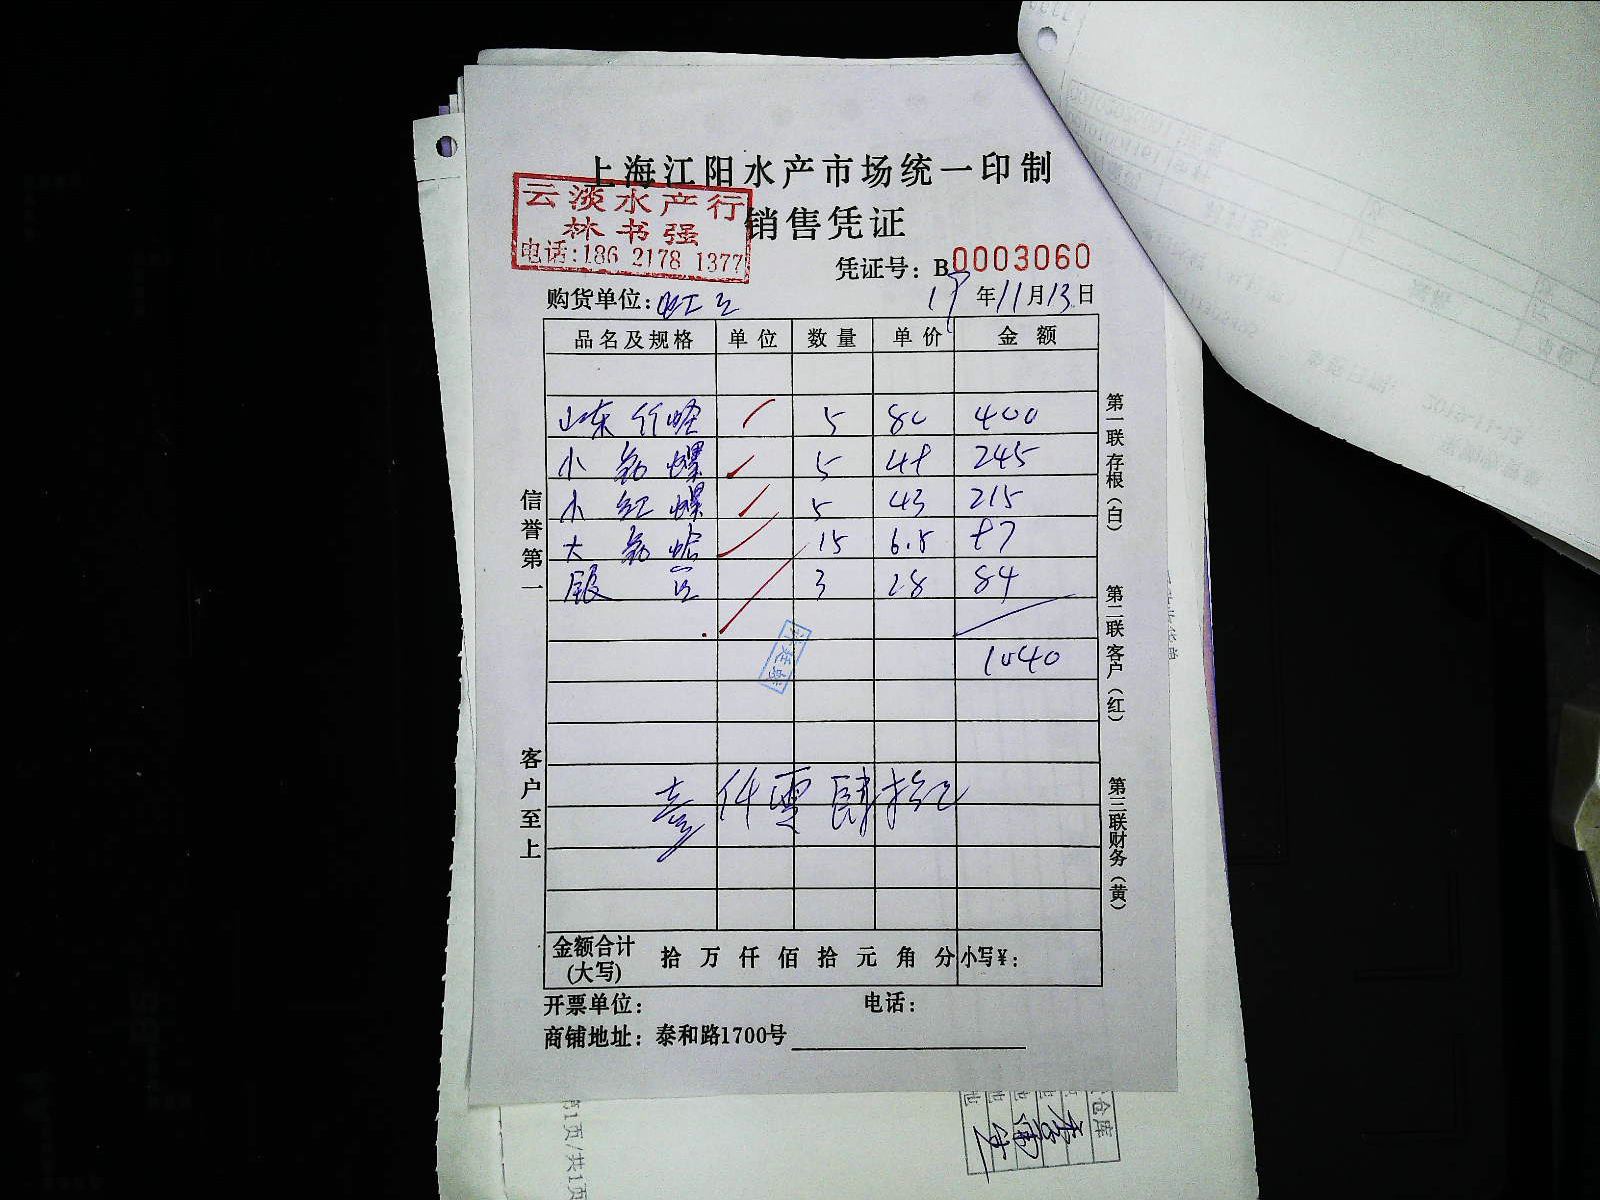 上海江阳水产市场统一印制
销售凭证
云淡水产行
林书强
电话:186 2178 1377
凭证号: B0003060
购货单位: 虹
19年11月13日
品名及规格 单位 数量 单价 金额
山东竹蛏 5 80 400
小 螺 5 49 245
小红螺 5 43 215
大 蛤 15 6.5 97
3 28 84
1040
壹仟零肆拾元
金额合计(大写) 拾 万 仟 佰 拾 元 角 分 小写¥:
开票单位: 电话:
商铺地址: 泰和路1700号
信誉第一
客户至上
第一联存根(白)
第二联客户(红)
第三联财务(黄)
仓库
第1页/共1页